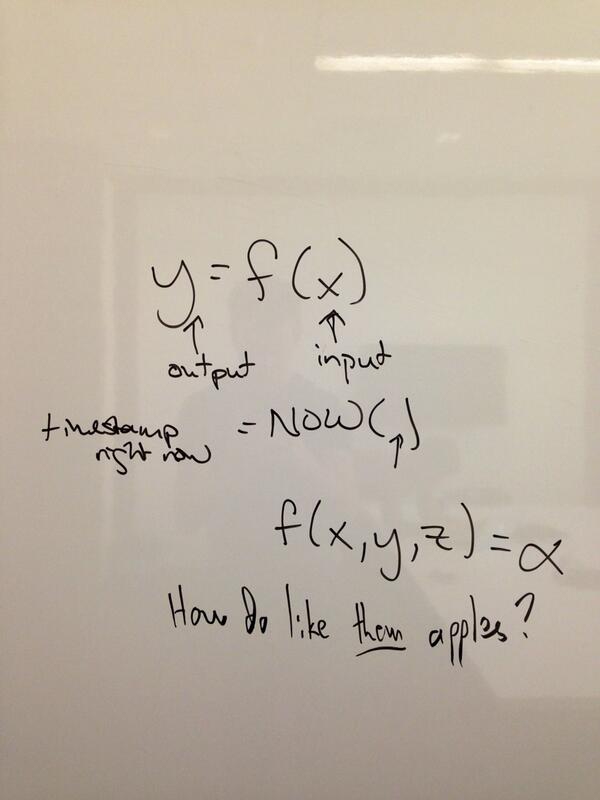 y = f(x)
↑ ↑
output input
timestamp right now = NOW( )
↑
f(x,y,z) = α
How do like them apples?